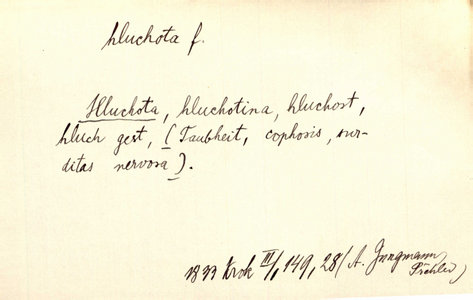 hluchota f.
Hluchota, hluchotina, hluchost,
hluch gest, (Taubheit, cophosis, sur-
ditas nervosa).
1833 Krok III/1, 149, 28 (A. Jungmann,
Pichler)